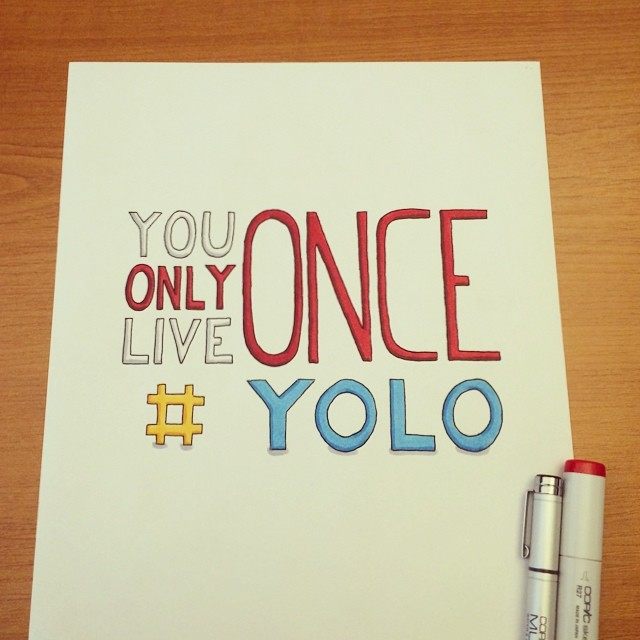 YOU
ONLY
LIVE
ONCE
# YOLO
COPIC
ML
COPIC
R27